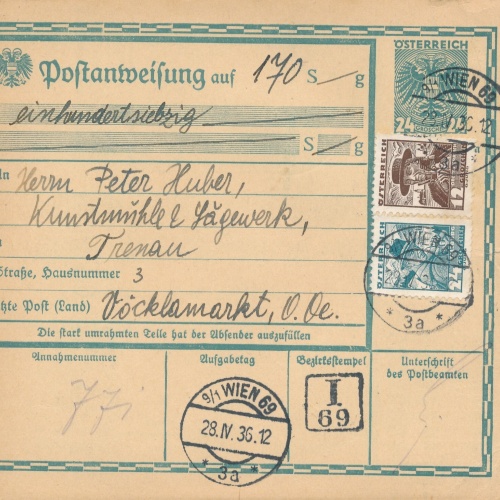 ÖSTERREICH
Postanweisung auf 170 S g
einhundertsiebzig
S g
Herrn Peter Huber,
Kunstmühle & Sägewerk,
Frenau
Straße, Hausnummer 3
tzte Post (Land) Vöcklamarkt, O. Oe.
Die stark umrahmten Teile hat der Absender auszufüllen
Annahmenummer
Aufgabetag
Bezirksstempel
Unterschrift
des Postbeamten
I
69
9/1 WIEN 69
28.IV.36.12
* 3a *
WIEN 69
IV.36.12
3a
24
ÖSTERREICH
12
WIEN 69
* 3a *
ÖSTERREICH
24